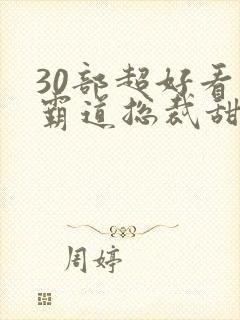 30部超好看
霸道总裁甜
周婷